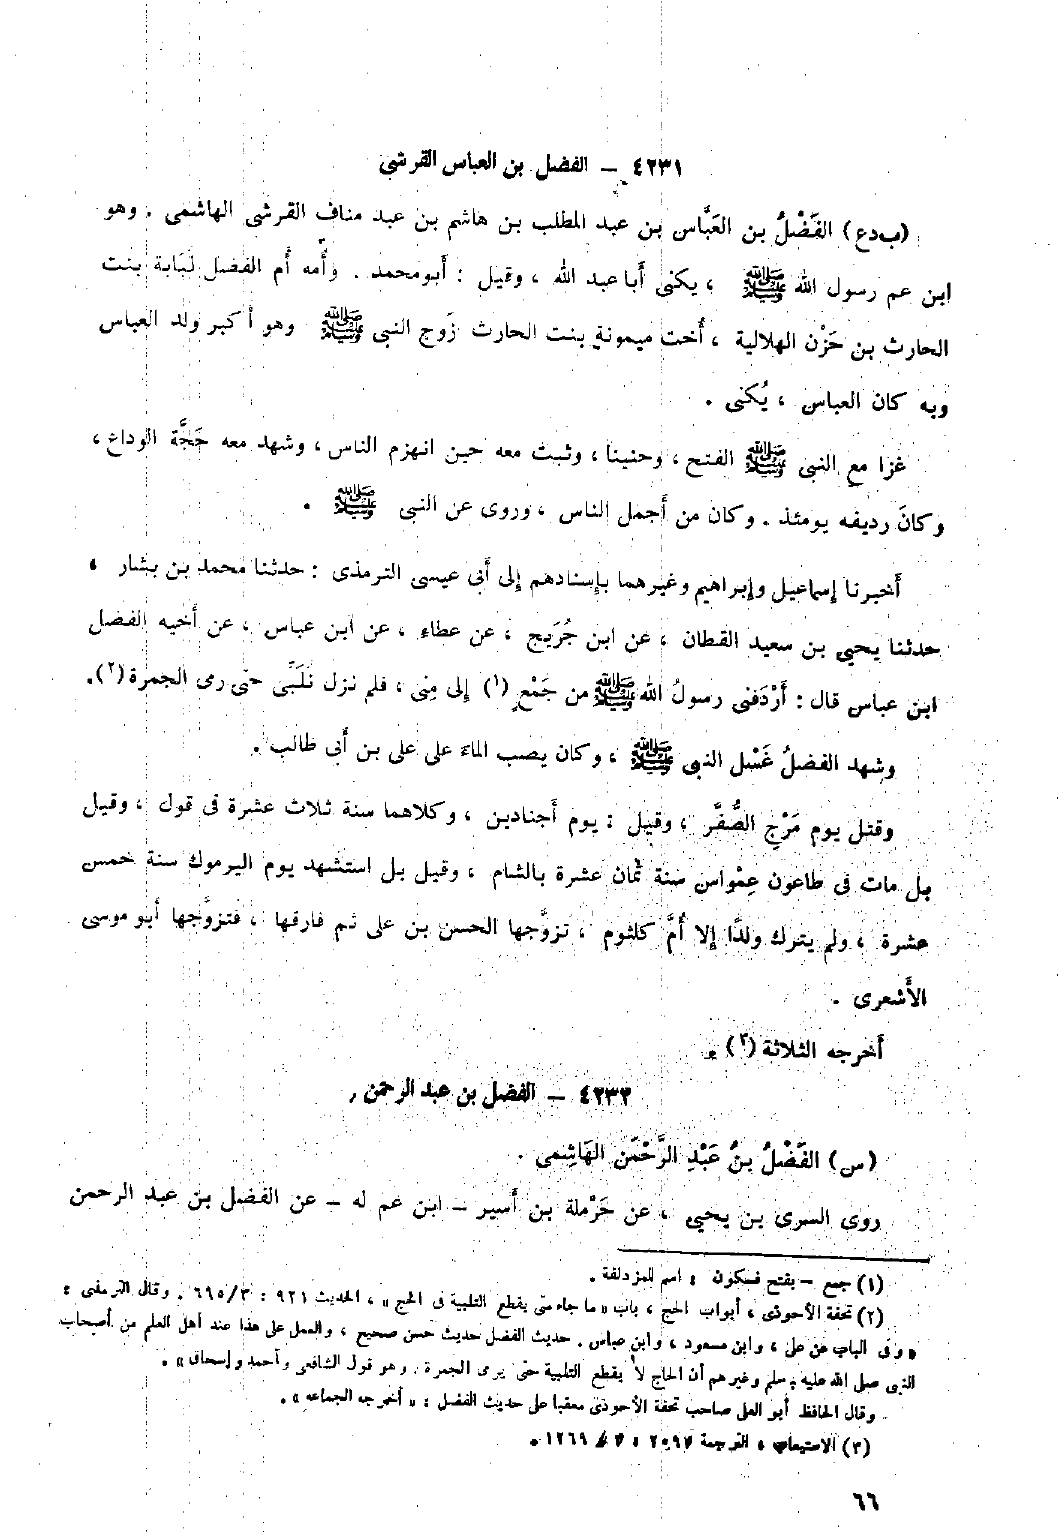 ٤٢٣١ – الفضل بن العباس القرشى
(ب د ع) الفَضْلُ بن العَبَّاس بن عبد المطلب بن هاشم بن عبد مناف القرشى الهاشمى . وهو
ابن عم رسول الله ﷺ ، يكنى أَبا عبد الله ، وقيل : أَبو محمد . وأُمه أُم الفضل لُبَابة بنت
الحارث بن حَزْن الهلالية ، أُخت ميمونة بنت الحارث زَوج النبى ﷺ وهو أَكبر ولد العباس
وبه كان العباس ، يُكنى .
غزا مع النبى ﷺ الفتح ، وحنينا ، وثبت معه حين انهزم الناس ، وشهد معه حَجَّة الوداع ،
وكانَ رديفه يومئذ . وكان من أَجمل الناس ، وروى عن النبى ﷺ .
أَخبرنا إِسماعيل وإِبراهيم وغيرهما بإِسنادهم إِلى أَبى عيسى الترمذى : حدثنا محمد بن بشار ،
حدثنا يحيى بن سعيد القطان ، عن ابن جُرَيج ، عن عطاء ، عن ابن عباس ، عن أَخيه الفضل
ابن عباس قال : أَرْدَفنى رسولُ الله ﷺ من جَمْعٍ (١) إِلى مِنى ، فلم نزل نُلَبِّى حتى رمى الجمرة (٢) .
وشهد الفضلُ غَسْل النبى ﷺ ، وكان يصب الماءَ على على بن أَبى طالب .
وقتل يوم مَرْج الصُّفَّر ، وقيل : يوم أَجنادين ، وكلاهما سنة ثلاث عشرة فى قول ، وقيل
بل مات فى طاعون عِمْواس سنة ثمان عشرة بالشام ، وقيل بل استشهد يوم اليرموك سنة خمس
عشرة ، ولم يترك ولدًا إِلا أُمَّ كلثوم ، تزوَّجها الحسن بن على ثم فارقها ، فتزوَّجها أَبو موسى
الأَشعرى .
أَخرجه الثلاثة (٣) .
٤٢٣٢ – الفضل بن عبد الرحمن
(س) الفَضْلُ بنُ عَبْدِ الرَّحْمَن الهَاشِمى .
روى السرى بن يحيى ، عن حَرْملة بن أَسير – ابن عم له – عن الفضل بن عبد الرحمن
(١) جمع – بفتح فسكون : اسم للمزدلفة .
(٢) تحفة الأحوذى ، أبواب الحج ، باب « ما جاء متى يقطع التلبية فى الحج » ، الحديث ٩٢١ : ٦٩٥/٣ . وقال الترمذى :
« وفى الباب عن على ، وابن مسعود ، وابن عباس . حديث الفضل حديث حسن صحيح ، والعمل على هذا عند أهل العلم من أصحاب
النبى صلى الله عليه وسلم وغيرهم أن الحاج لا يقطع التلبية حتى يرمى الجمرة . وهو قول الشافعى وأحمد وإسحاق » .
وقال الحافظ أبو العلى صاحب تحفة الأحوذى معقبا على حديث الفضل : « أخرجه الجماعة » .
(٣) الاستيعاب ، الترجمة ٢٠٩٣ : ١٢٦٩ .
٦٦